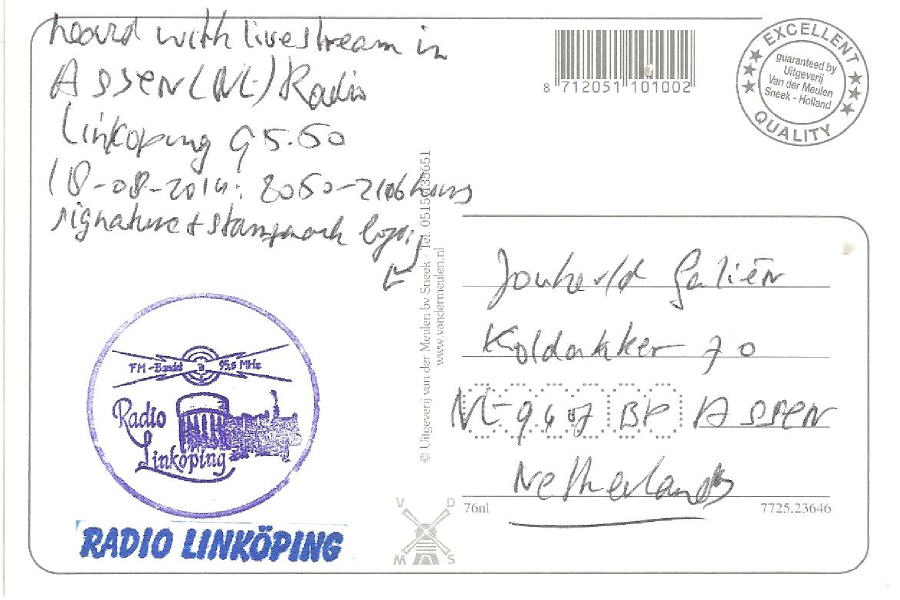 heard with livestream in
Assen (NL) Radio
Linköping 95.50
18-08-2014: 2050-2106 hours
signature + stampmark logo
FM-Bandet 95,5 MHz
Radio
Linköping
RADIO LINKÖPING
8 712051 101002
EXCELLENT
guaranteed by
Uitgeverij
Van der Meulen
Sneek - Holland
QUALITY
© Uitgeverij van der Meulen bv Sneek - Tel.
www.vandermeulen.nl
Koldakker 70
NL-9407 BP Assen
Netherlands
76nl
7725.23646
V D
M S